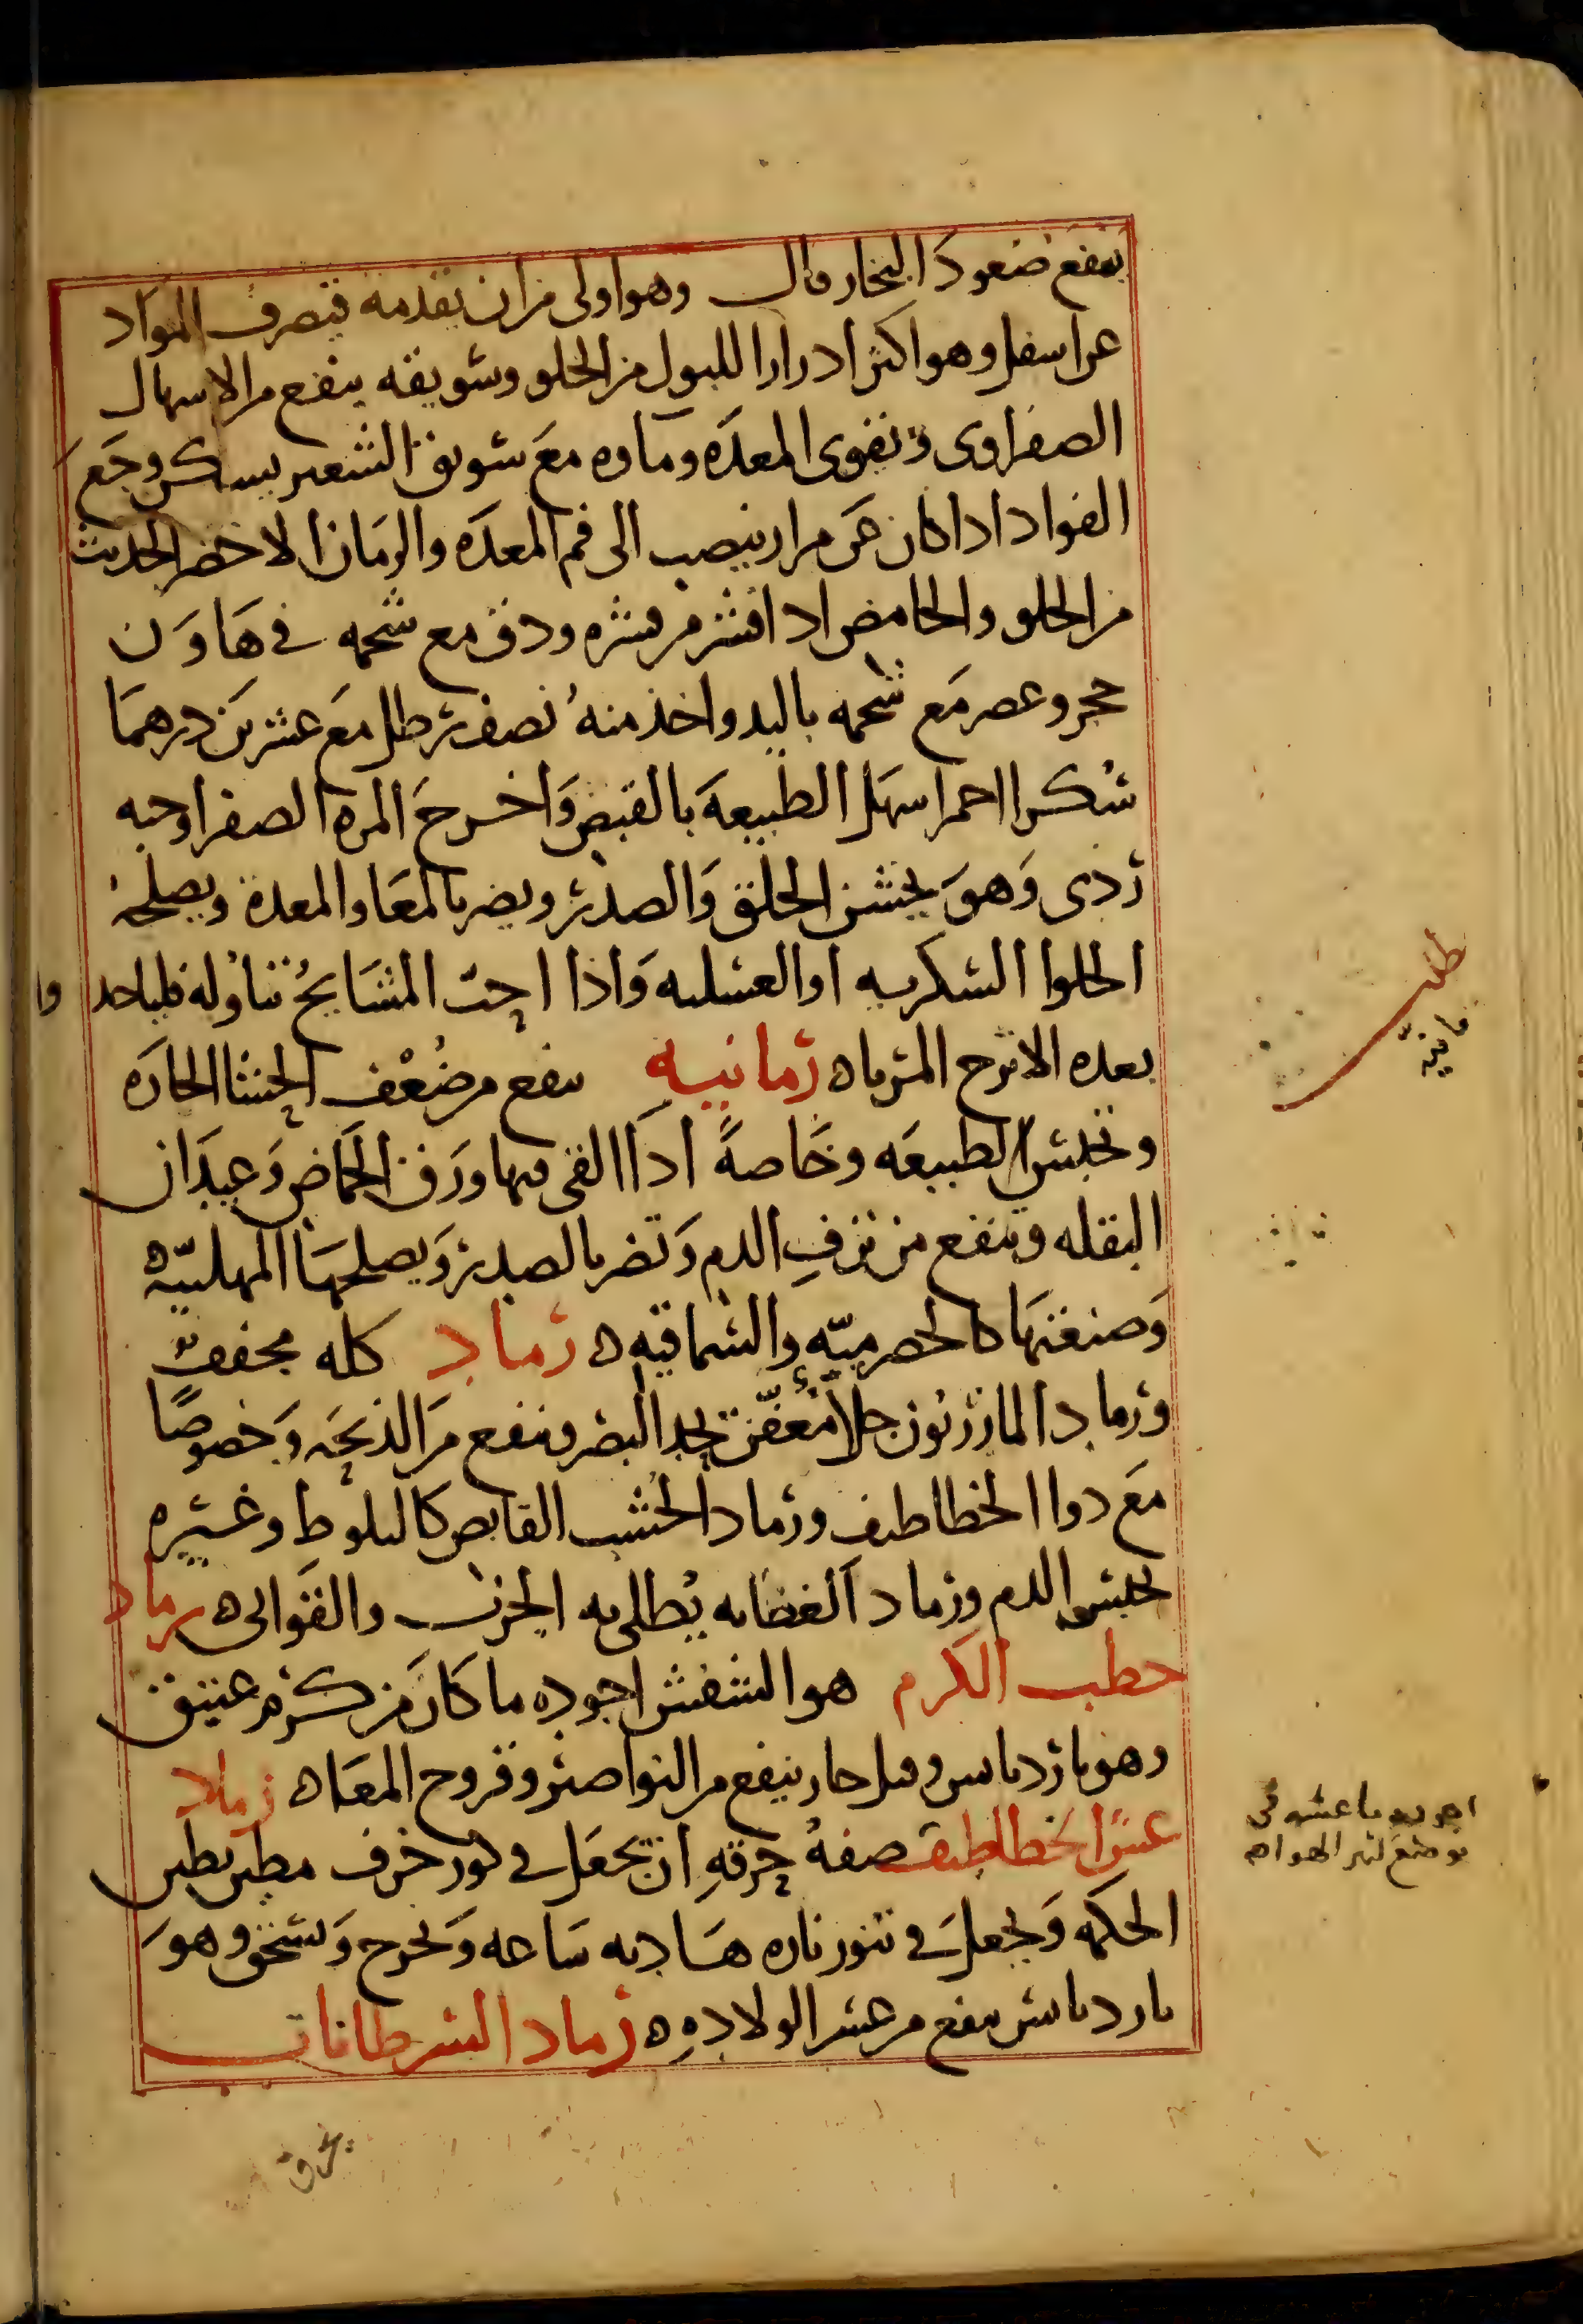 يمنع صعود البخار قال وهو اولى من ان يقدمه فيصرف المواد
عن اسفل وهو اكثر ادرارا للبول من الحلو وسويقه ينفع من الاسهال
الصفراوى ويقوى المعدَه وماوه معَ سويق الشعير يسكن وجَعَ
الفواد اذا كان عَن مرار ينصب الى فم المعدَه والرمَان الاخضر الحديث
من الحلو والحامض اذا قشر من قشره ودق مع شحمه فى هَاوَن
حجر وعصر مَع شحمه باليد واخذ منهُ نصف رطل مَع عشرين درهمَا
سُكرا احمر اسهَل الطبيعَهَ بالقبض وَاخرجَ المره الصفرا وحبه
رَدى وَهوَ يخشن الحلق وَالصدر ويضر بالمعَا والمعدة ويصلحهُ
الحلوا السكريه او العسليه وَاذا احبّ المشَايخُ تناوُله فلياخد وا
بعده الاترج المرباه رُمانيه ينفع من ضُعْف الحشا الحارَه
وتحبس الطبيعَه وخَاصةً اذَا القى فيها ورَق الحُمَاض وَعيدَان
البقله وينفع من نزفِ الدم وَتضر بالصدر وَيصلحهَا المهلبيّه ه
وَصنعتهَا كالحصرميّه والسماقيه ه رَماد كله مجففٌ
ورماد المازريون جلاّ مُعفّن يحد البصر وينفع مَن الذبحَه وَخصوصًا
مَع دوا الخطاطيف ورماد الخشب القابض كالبلوطِ وغيره
يحبس الدم ورماد الغضا به يُطلى به الجرب والقوَابى ه رماد
حطب الكرم هو الشفش اجوده ما كانَ من كرْم عتيق
وهو بارد يابس وقيل حار ينفع من النواصير وقروح المعَا ه رماد
عشّ الخطاطيف صفةُ حرقهِ ان يجعَل فى كوز خزف مطين بطين
الحكمه وَيجعل فى تنور ناره هَاديه سَاعه وَيخرج وَيسحق وهوَ
بارد يابس ينفع من عسر الولادهِ ه رَماد السرطانات
طب
مانيّه
اجوده ما عشه فى
موضع كثير الهواء